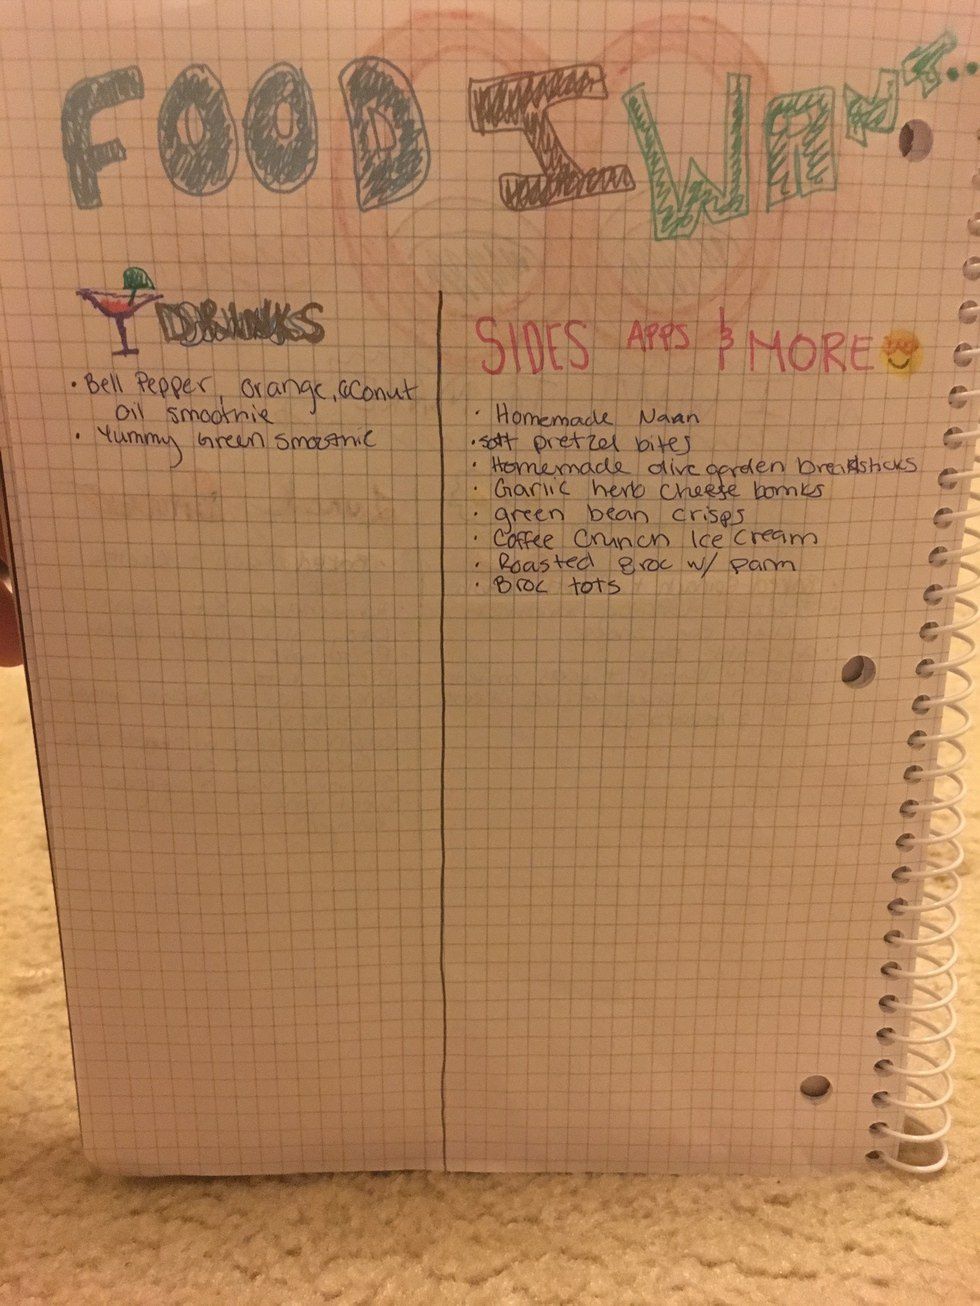 FOOD I WANT...
DRINKS
• Bell Pepper, orange, coconut
oil smoothie
• Yummy Green Smoothie
SIDES APPS & MORE
• Homemade Naan
• soft pretzel bites
• Homemade olive garden breadsticks
• Garlic herb cheese bombs
• green bean crisps
• Coffee Crunch Ice Cream
• Roasted Broc w/ parm
• Broc tots